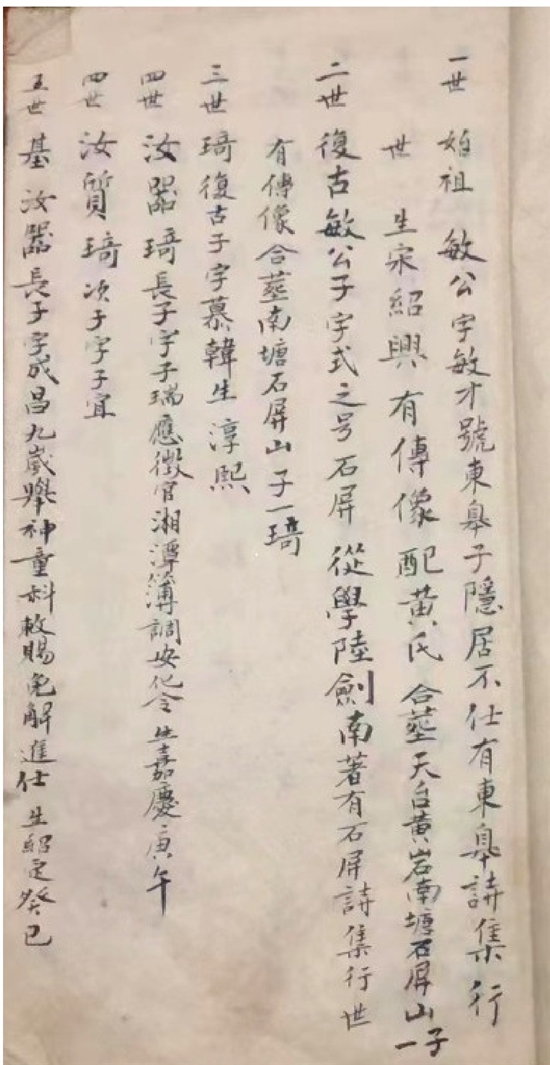 一世 始祖 敏公字敏才號東臯子隱居不仕有東臯詩集行
世 生宋紹興有傳像配黄氏合塟天台黄岩南塘石屏山一子
二世 復古敏公子字式之号石屏從學陸劍南著有石屏詩集行世
有傳像合塟南塘石屏山子一琦
三世 琦復古子字慕韓生淳熙
四世 汝器琦長子字子瑞應徴官湘潭簿調安化令生嘉慶庚午
四世 汝質琦次子字子宜
五世 基汝器長子字成昌九嵗舉神童科敕賜免解進仕生紹定癸巳